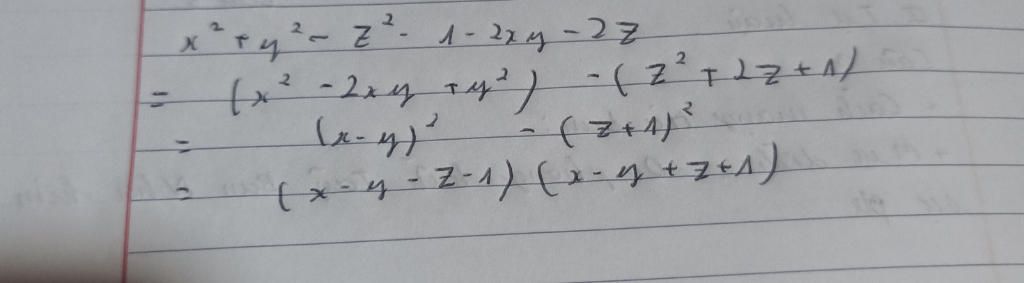 x² + y² - z² - 1 - 2xy - 2z
= (x² - 2xy + y²) - (z² + 2z + 1)
= (x - y)² - (z + 1)²
= (x - y - z - 1) (x - y + z + 1)